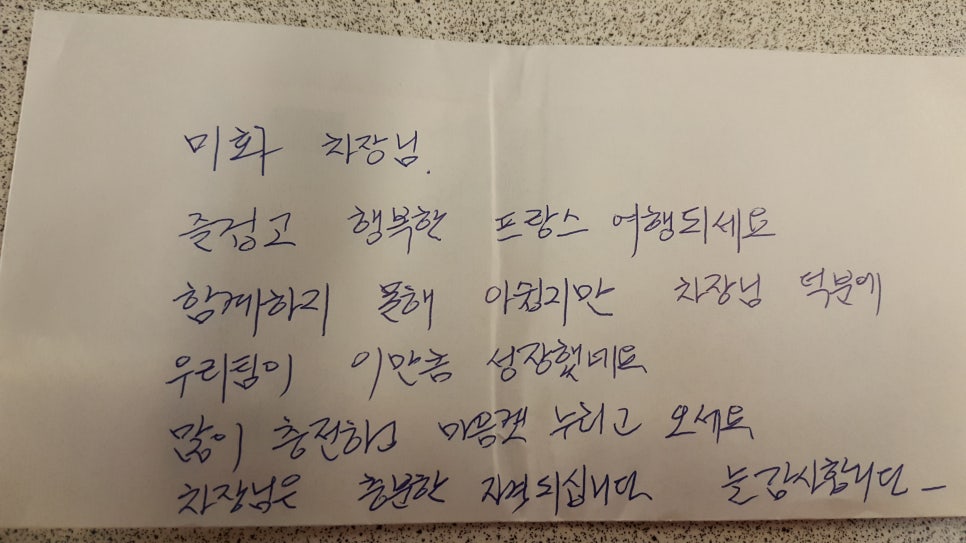 미화 차장님.
즐겁고 행복한 프랑스 여행되세요
함께하지 못해 아쉽지만 차장님 덕분에
우리팀이 이만큼 성장했네요
많이 충전하고 마음껏 누리고 오세요
차장님은 충분한 자격되십니다 늘 감사합니다_